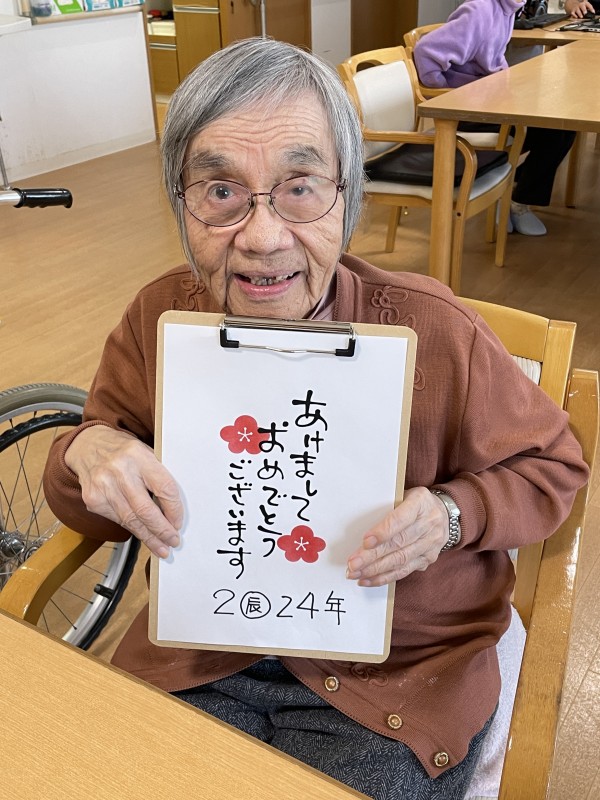 あけまして
おめでとう
ございます
2㊋24年